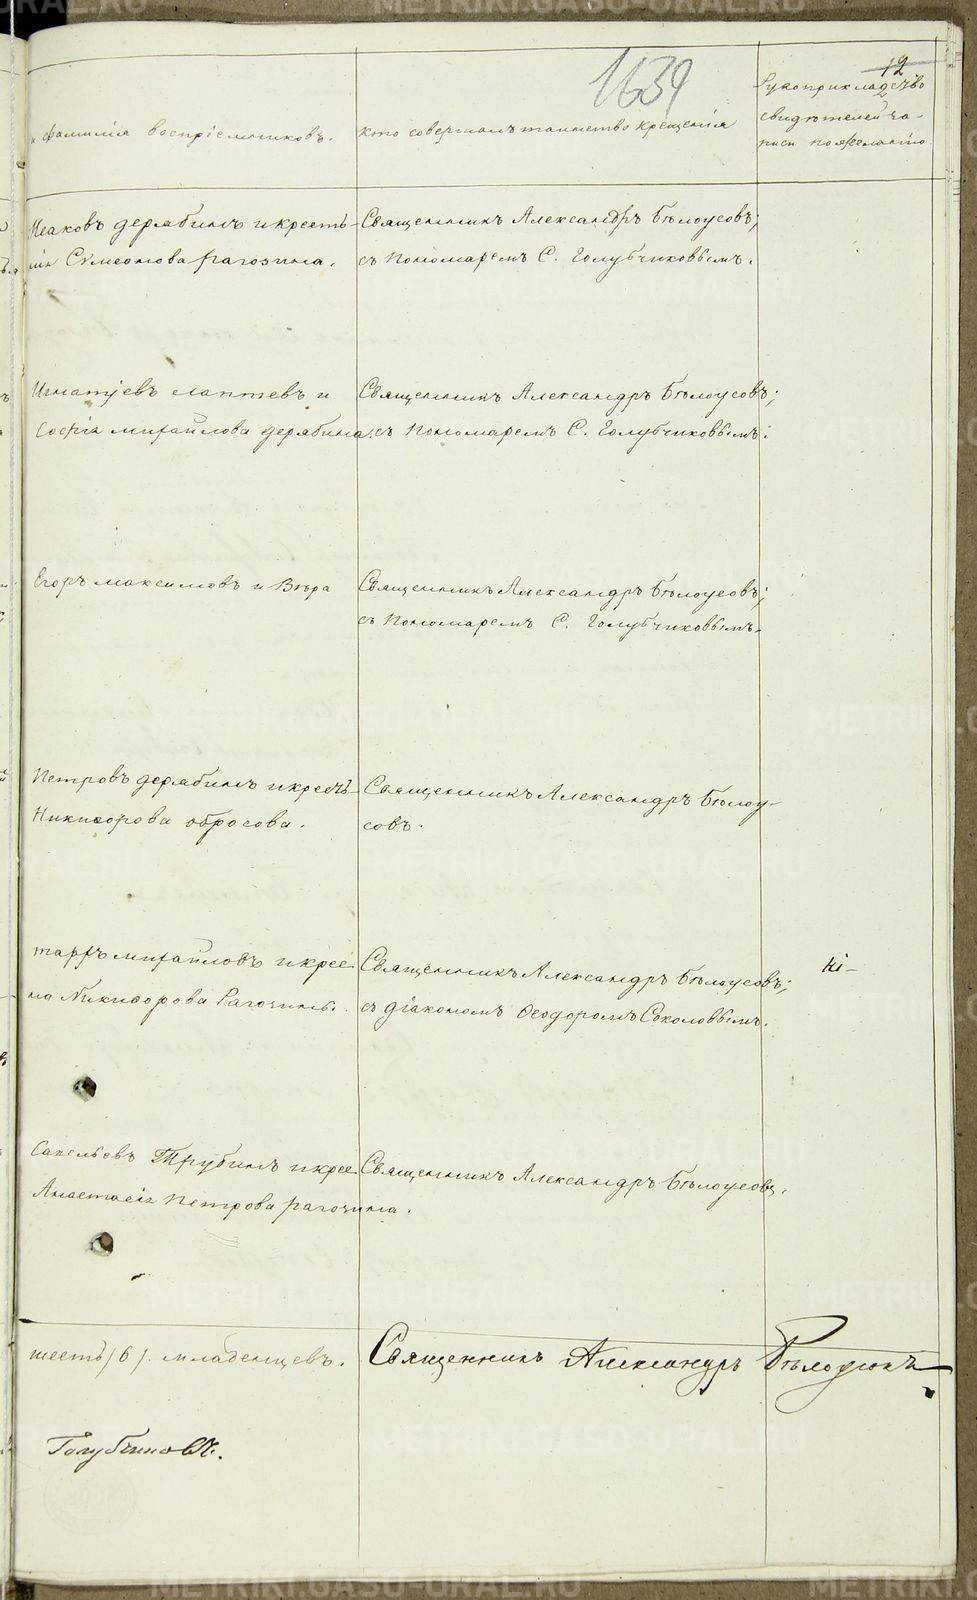 1639
12
и фамилія воспріемниковъ.
кто совершалъ таинство крещенія
Рукоприкладство
свидѣтелей за-
писи по желанію
Исаковъ дерябинъ и кресть-
Симеонова рагозина.
Священникъ Александръ Бѣлоусовъ;
съ пономаремъ С. Голубчиковымъ.
Игнатіевъ лаптевъ и
Софія михайлова дерябина.
Священникъ Александръ Бѣлоусовъ;
съ пономаремъ С. Голубчиковымъ.
Егоръ максимовъ и Вѣра
Священникъ Александръ Бѣлоусовъ;
съ пономаремъ С. Голубчиковымъ.
Петровъ дерябинъ и кресть-
Никифорова обросова.
Священникъ Александръ Бѣлоу-
совъ.
михайловъ и крес
на Никифорова Рагозины.
Священникъ Александръ Бѣлоусовъ;
съ діакономъ Ѳеодоромъ Соколовымъ.
Савельевъ Трубинъ и крес
Анастасія Петрова рагозина.
Священникъ Александръ Бѣлоусовъ.
шесть (6). младенцевъ.
Священникъ Александръ Бѣлоусовъ
Голубчиковъ.
METRIKI.GASO-URAL.RU